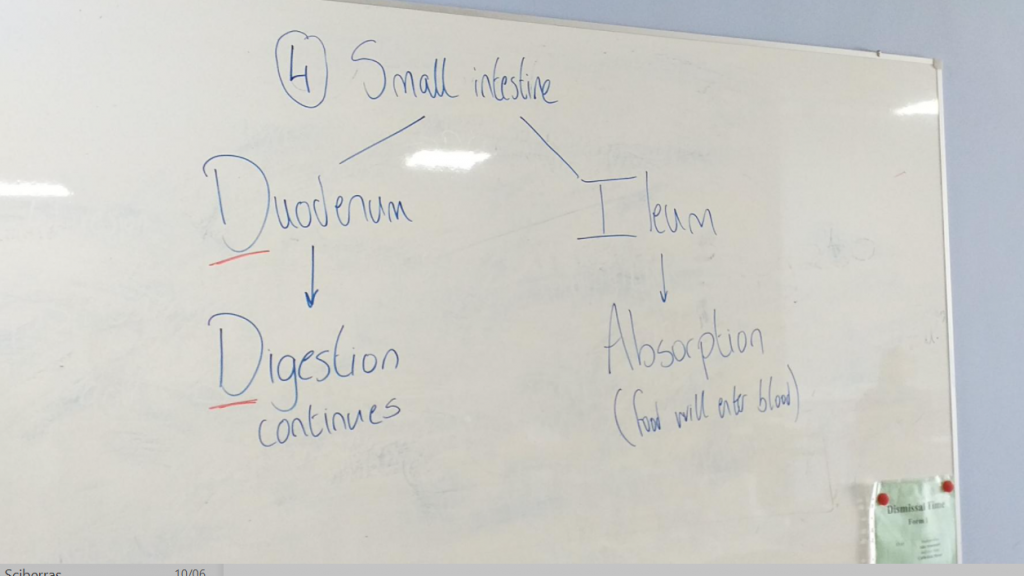 4 Small intestine
Duodenum Ileum
Digestion Absorption
continues (food will enter blood)
Dismissal Time
Form 1
Sciberras 10/06